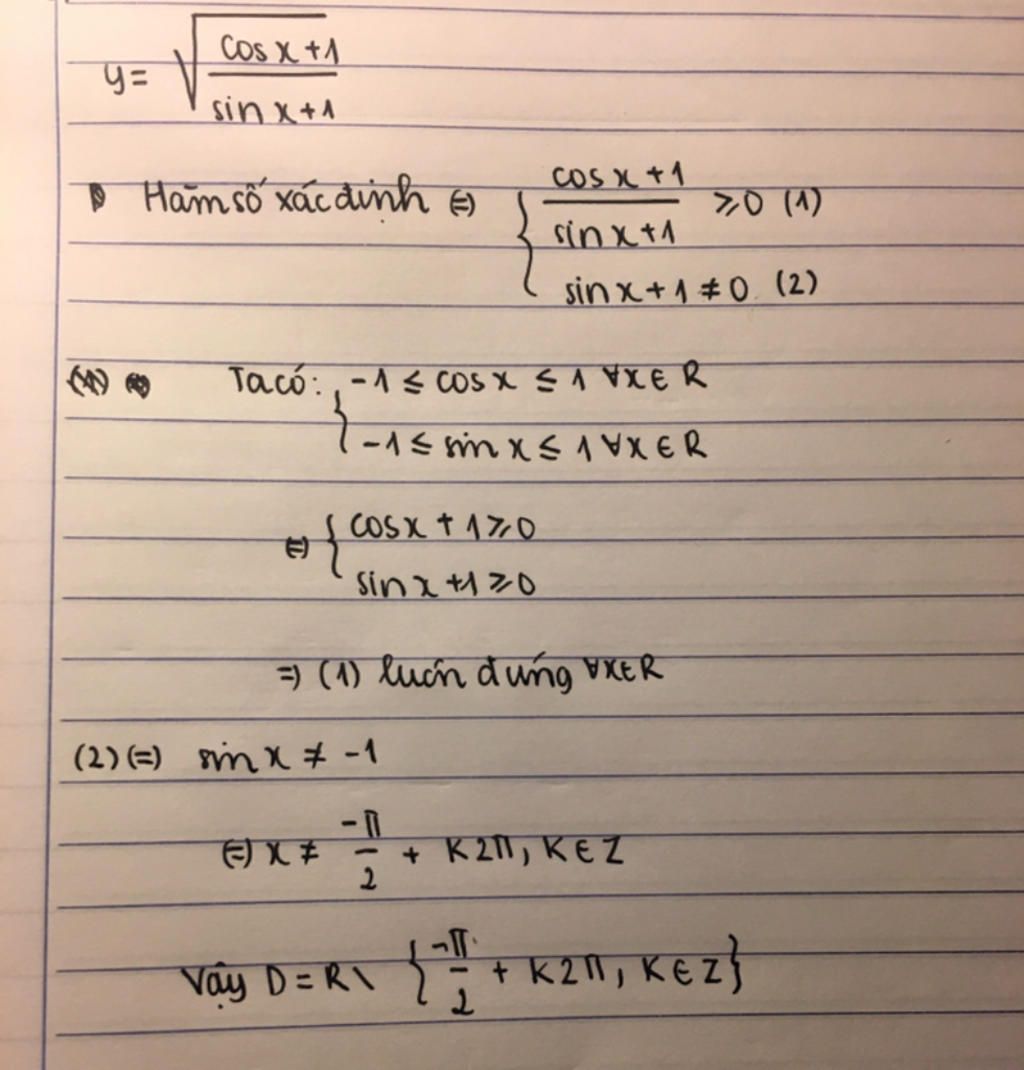 y = √((cos x + 1)/(sin x + 1))
Hàm số xác định (=) { (cos x + 1)/(sin x + 1) ≥ 0 (1)
sin x + 1 ≠ 0 (2)
Ta có: { -1 ≤ cos x ≤ 1 ∀x ∈ R
-1 ≤ sin x ≤ 1 ∀x ∈ R
(=) { cos x + 1 ≥ 0
sin x + 1 ≥ 0
=) (1) luôn đúng ∀x ∈ R
(2) (=) sin x ≠ -1
(=) x ≠ -π/2 + K2π, K ∈ Z
Vậy D = R \ { -π/2 + K2π, K ∈ Z }